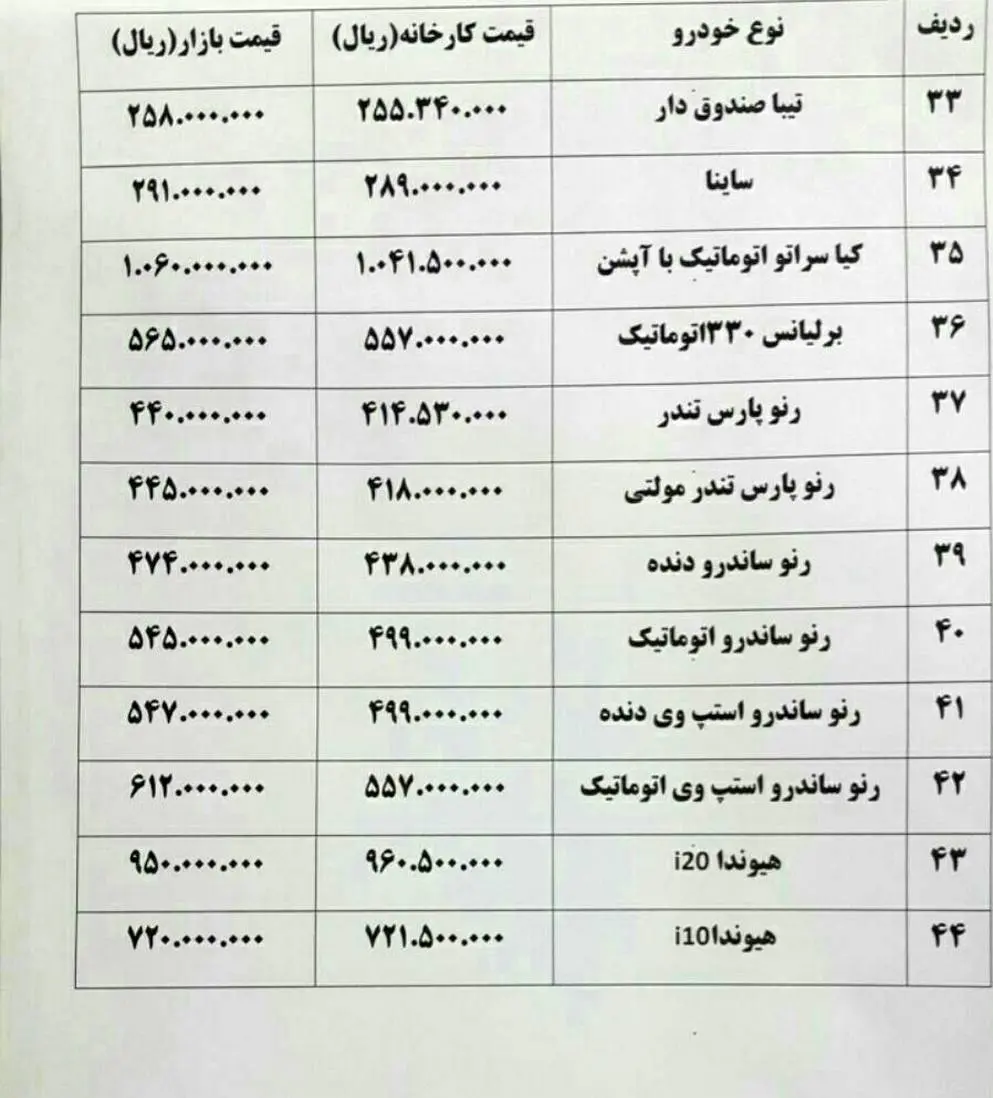 ردیف نوع خودرو قیمت کارخانه(ریال) قیمت بازار(ریال)
۳۳ تیبا صندوق دار ۲۵۵.۳۴۰.۰۰۰ ۲۵۸.۰۰۰.۰۰۰
۳۴ ساینا ۲۸۹.۰۰۰.۰۰۰ ۲۹۱.۰۰۰.۰۰۰
۳۵ کیا سراتو اتوماتیک با آپشن ۱.۰۴۱.۵۰۰.۰۰۰ ۱.۰۶۰.۰۰۰.۰۰۰
۳۶ برلیانس ۳۳۰اتوماتیک ۵۵۷.۰۰۰.۰۰۰ ۵۶۵.۰۰۰.۰۰۰
۳۷ رنو پارس تندر ۴۱۴.۵۳۰.۰۰۰ ۴۴۰.۰۰۰.۰۰۰
۳۸ رنو پارس تندر مولتی ۴۱۸.۰۰۰.۰۰۰ ۴۴۵.۰۰۰.۰۰۰
۳۹ رنو ساندرو دنده ۴۳۸.۰۰۰.۰۰۰ ۴۷۴.۰۰۰.۰۰۰
۴۰ رنو ساندرو اتوماتیک ۴۹۹.۰۰۰.۰۰۰ ۵۴۵.۰۰۰.۰۰۰
۴۱ رنو ساندرو استپ وی دنده ۴۹۹.۰۰۰.۰۰۰ ۵۴۷.۰۰۰.۰۰۰
۴۲ رنو ساندرو استپ وی اتوماتیک ۵۵۷.۰۰۰.۰۰۰ ۶۱۲.۰۰۰.۰۰۰
۴۳ هیوندا i20 ۹۶۰.۵۰۰.۰۰۰ ۹۵۰.۰۰۰.۰۰۰
۴۴ هیونداi10 ۷۲۱.۵۰۰.۰۰۰ ۷۲۰.۰۰۰.۰۰۰